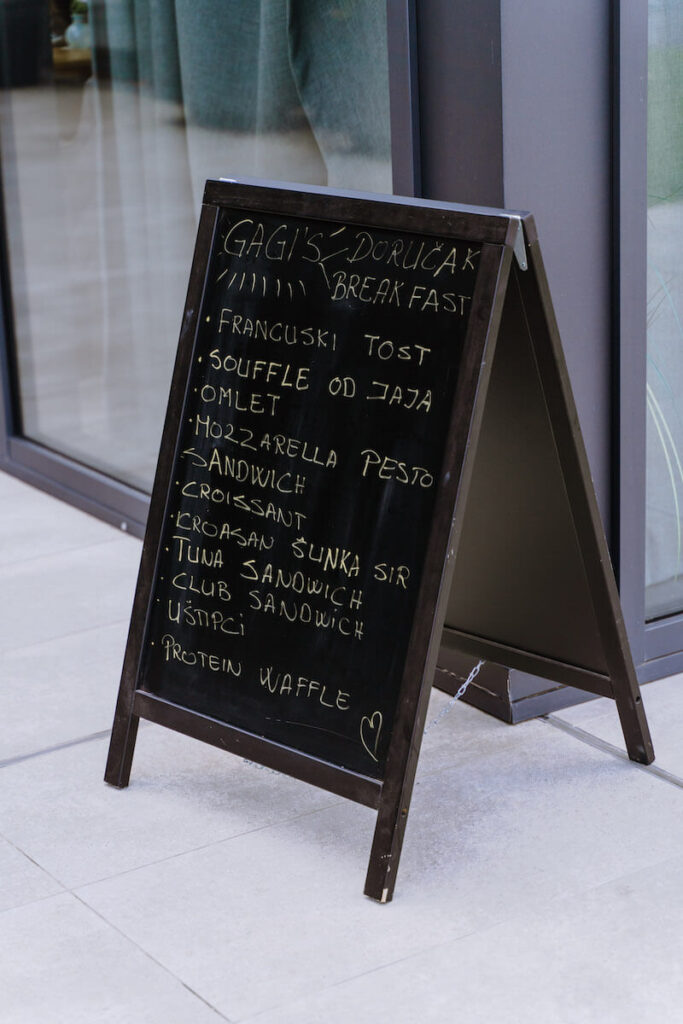 GAGI'S DORUČAK
BREAKFAST
• FRANCUSKI TOST
• SOUFFLE OD JAJA
• OMLET
• MOZZARELLA PESTO
SANDWICH
• CROISSANT
• KROASAN ŠUNKA SIR
• TUNA SANDWICH
• CLUB SANDWICH
• UŠTIPCI
• PROTEIN WAFFLE